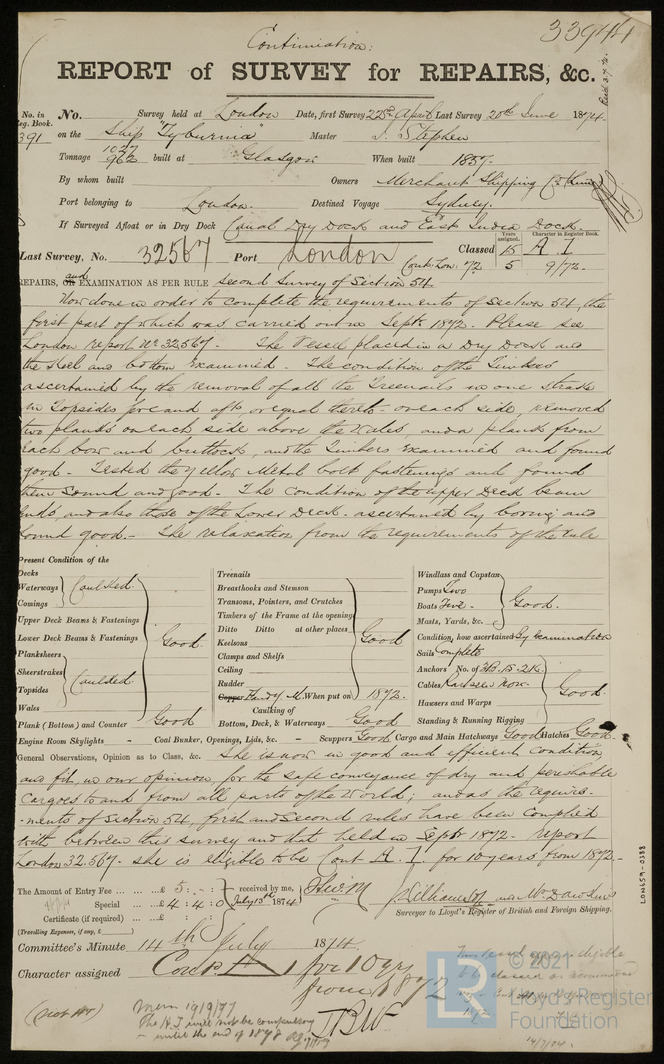 33944
Continuation:
REPORT of SURVEY for REPAIRS, &c.
No. in Reg. Book. No. Survey held at London Date, first Survey 22nd April Last Survey 20th June 1874.
391 on the Ship "Tyburnia" Master J. Stephen
Tonnage 1027 962 built at Glasgow When built 1857.
By whom built Owners Merchant Shipping Co
Port belonging to London. Destined Voyage Sydney.
If Surveyed Afloat or in Dry Dock Canal Dry Dock and East India Dock.
Years assigned. Character in Register Book.
Last Survey, No. 32567 Port London Classed 15 A.1
Cont. Lon. '72 5 9/72.
REPAIRS, and EXAMINATION AS PER RULE Second Survey of Section 54
Now done in order to complete the requirements of Section 54, the
first part of which was carried out in Septr 1872. Please see
London report No 32567. The Vessel placed in a Dry Dock and
the Keel and bottom Examined. The condition of the Timbers
ascertained by the removal of all the Treenails in one strake
in Topsides fore and aft, or equal thereto on each side, removed
two planks on each side above the Wales, and a plank from
each bow and buttock, and the Timbers Examined and found
good. Tested the Yellow Metal bolt fastenings and found
them Sound and good. The condition of the upper Deck beam
Ends and also those of the Lower Deck ascertained by boring and
found good. The relaxation from the requirements of the rule
Present Condition of the
Decks
Waterways Caulked.
Comings
Upper Deck Beams & Fastenings
Lower Deck Beams & Fastenings Good.
Planksheers
Sheerstrakes
Topsides Caulked.
Wales
Plank (Bottom) and Counter Good
Treenails
Breasthooks and Stemson
Transoms, Pointers, and Crutches
Timbers of the Frame at the opening
Ditto Ditto at other places Good
Keelsons
Clamps and Shelfs
Ceiling
Rudder
Copper M. When put on 1872.
Caulking of Bottom, Deck, & Waterways Good
Windlass and Capstan
Pumps Two
Boats Five Good.
Masts, Yards, &c.
Condition, how ascertained By Examination
Sails Complete
Anchors No. of 3B. 1S. 2K.
Cables Good.
Hawsers and Warps
Standing & Running Rigging
Engine Room Skylights - Coal Bunker, Openings, Lids, &c. - Scuppers Good Cargo and Main Hatchways Good Hatches Good.
General Observations, Opinion as to Class, &c. She is now in good and efficient Condition
and fit, in our opinion, for the safe conveyance of dry and perishable
Cargoes to and from all parts of the World; and as the require-
-ments of Section 54, first and Second rules have been complied
with between this survey and that held in Septr 1872. report
London 32.567. she is eligible to be Cont A.1. for 10 years from 1872.
The Amount of Entry Fee ... £ 5 : - : received by me,
Special ... £ 4 : 4 : 0 July 13th 1874
Certificate (if required) ... £
(Travelling Expenses, if any, £ )
Surveyor to Lloyd's Register of British and Foreign Shipping.
Committee's Minute 14th July 1874.
Character assigned Contd A 1 for 10 yrs
from 1872
Mem 19/9/77
The H.T. will not be compulsory
until the end of 1878
LR
© 2021
Lloyd's Register
Foundation
LON659-0388